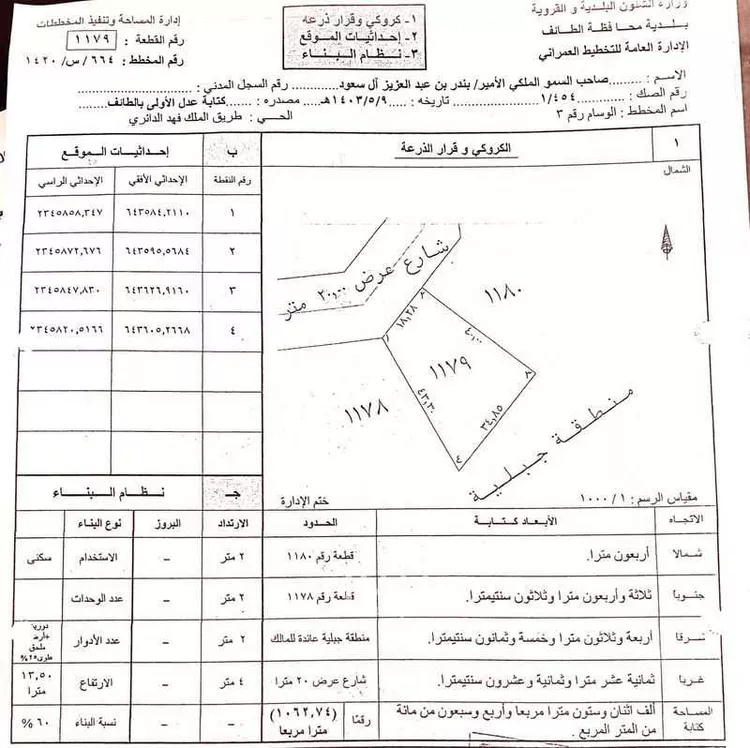 وزارة الشئون البلدية و القروية
بلدية محافظة الطائف
الإدارة العامة للتخطيط العمراني
١- كروكي وقرار ذرعه
٢- إحداثيات الموقع
٣- نظام البناء
إدارة المساحة وتنفيذ المخططات
رقم القطعة : ١١٧٩
رقم المخطط : ٦٦٤/س/١٤٢٠
الاسم : ........صاحب السمو الملكي الأمير/ بندر بن عبد العزيز آل سعود............رقم السجل المدني: .............
رقم الصك : ............١/٤٥٤............ تاريخه : ....١٤٠٣/٥/٩هـ مصدره :....كتابة عدل الأولى بالطائف........
اسم المخطط : الوسام رقم ٣ الحي : طريق الملك فهد الدائري
١ الكروكي و قرار الذرعة
الشمال
شارع عرض ٢٠,٠٠ متر
١١٨٠
١٨,٢٨
٤٠,٠٠
١
٢
١١٧٩
٣
٤٣,٣٠
١١٧٨
٣٤,٨٥
٤
منطقة جبلية
مقياس الرسم : ١ / ١٠٠٠
ختم الإدارة
ب إحداثيات الموقع
رقم النقطة الإحداثي الأفقي الإحداثي الراسي
١ ٦٤٣٥٨٤,٢١١٠ ٢٣٤٥٨٥٨,٣٤٧
٢ ٦٤٣٥٩٥,٥٦٨٤ ٢٣٤٥٨٧٢,٦٧٦
٣ ٦٤٣٦٢٦,٩١٦٠ ٢٣٤٥٨٤٧,٨٣٠
٤ ٦٤٣٦٠٥,٢٦٦٨ ٢٣٤٥٨٢٠,٥١٦٦
جـ نظام البناء
الاتجاه الأبعاد كتابة الحدود الارتداد البروز نوع البناء
شمالا أربعون مترا. قطعة رقم ١١٨٠ ٢ متر – الاستخدام سكنى
جنوبا ثلاثة وأربعون مترا وثلاثون سنتيمترا. قطعة رقم ١١٧٨ ٢ متر – عدد الوحدات
شرقا أربعة وثلاثون مترا وخمسة وثمانون سنتيمترا. منطقة جبلية عائدة للمالك ٢ متر – عدد الأدوار ملحق
غربا ثمانية عشر مترا وثمانية وعشرون سنتيمترا. شارع عرض ٢٠ مترا ٤ متر – الارتفاع ١٣,٥٠ مترا
المساحة كتابة ألف اثنان وستون مترا مربعا وأربع وسبعون من مائة من المتر المربع . رقمًا (١٠٦٢,٧٤) مترا مربعا – – نسبة البناء ٦٠ %